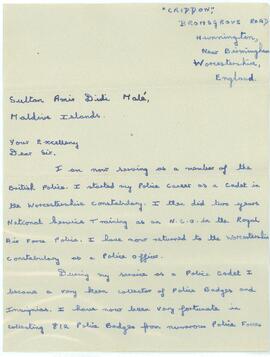 "CRIDDON",
BROMSGROVE ROAD
Hunnington,
New Birmingham
Worcestershire,
England.
Sultan Amis Didi Malé,
Maldive Islands.
Your Excellency
Dear Sir,
I am now serving as a member of the
British Police. I started my Police Career as a Cadet in
the Worcestershire Constabulary. I then did two years
National Service Training as an N.C.O. in the Royal
Air Force Police. I have now returned to the Worcestershire
Constabulary as a Police Officer.
During my service as a Police Cadet I
became a very keen collector of Police Badges and
Insignias. I have now been very fortunate in
collecting 812 Police Badges from numerous Police Forces